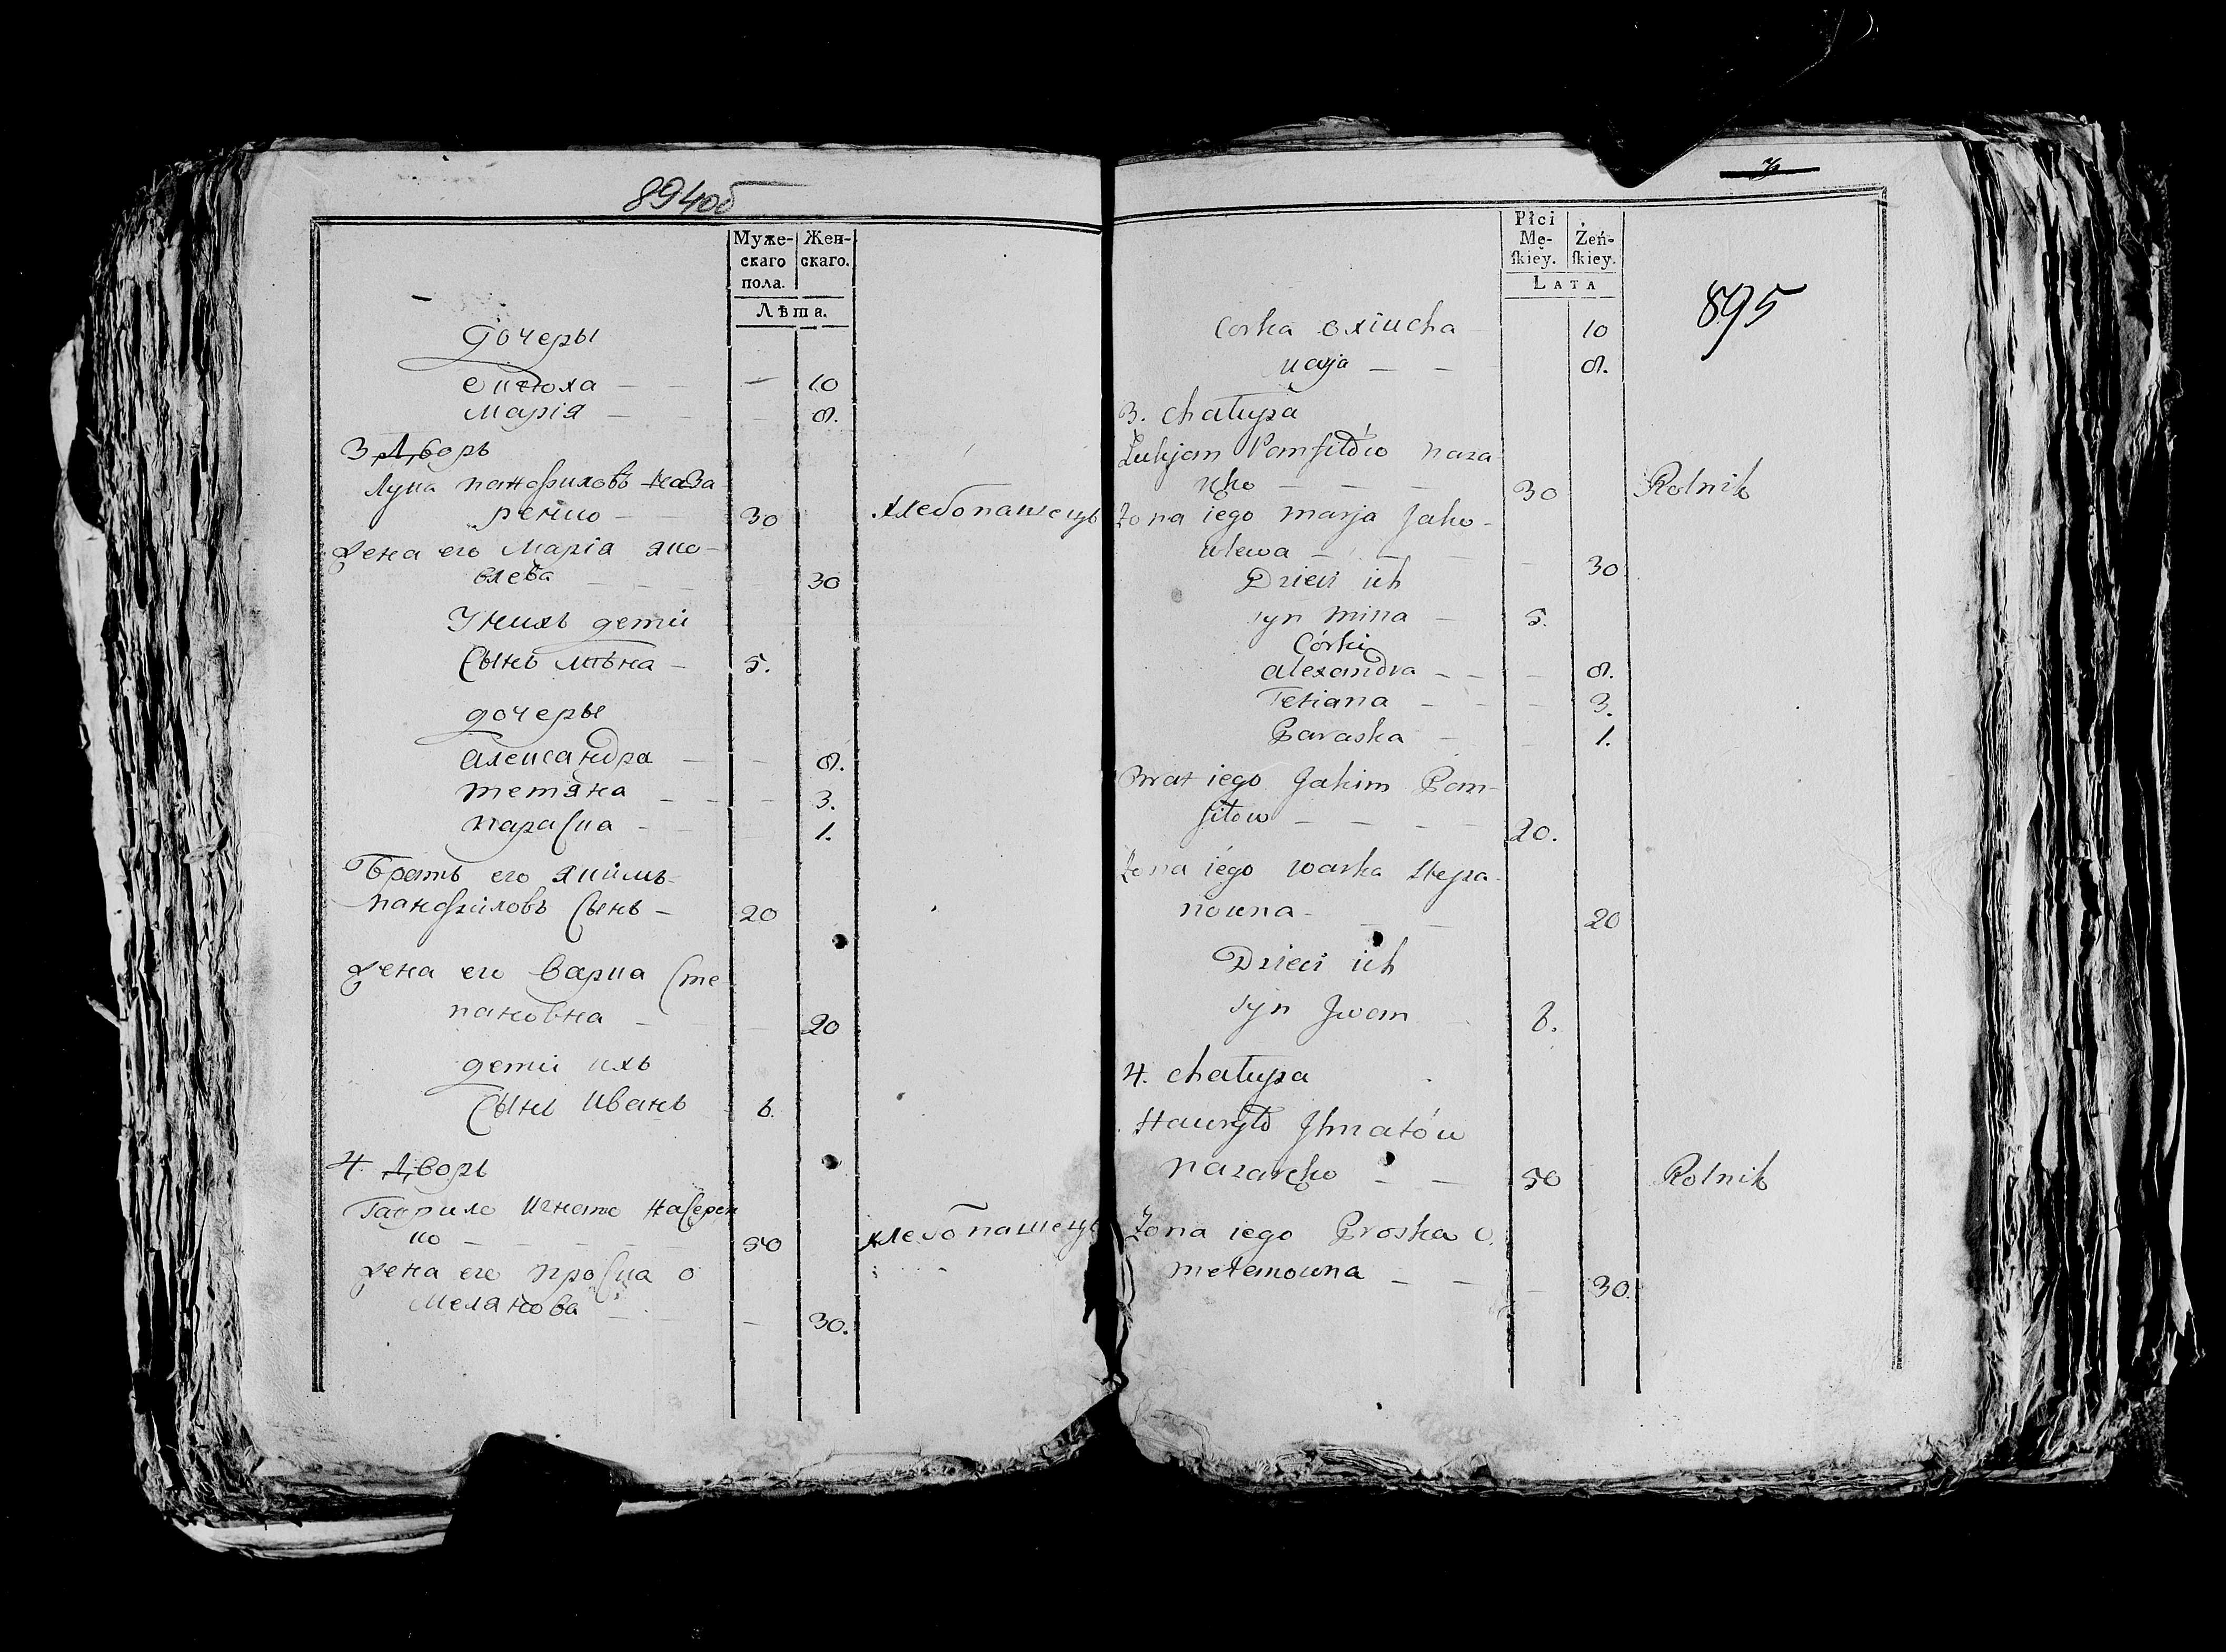 894об
Муже- Жен-
скаго скаго.
пола.
Лѣта.
дочеры
10
Марія 8.
3 Дворъ
Лука панфиловъ Наза
ренко 30 хлебопашецъ
жена его Марія яко
влева 30
У нихъ дети
Сынъ Мина 5.
дочеры
александра 8.
тетяна 3.
параска 1.
Братъ его якимъ
панфиловъ Сынъ 20
жена его Варка Сте
пановна 20
дети ихъ
Сынъ Иванъ
4 Дворъ
Гаврило Игнато
ко 50 хлебопашецъ
жена его проска о
Меланова 30.
7
Płci
Mę- Żeń-
skiey. skiey.
LATA
895
Corka 10
8.
3. chałupa
Łukjan Pamfiłów naza
rko 30 Rolnik
Żona iego marja Jako-
wlewa 30
Dzieci ich
syn mina 5.
Córki
alexandra 8.
Tetiana 3.
Paraska 1.
Brat iego Jakim Pam-
fiłow 20.
Żona iego warka Stepa-
nowna 20
Dzieci ich
syn Jwan
4. chałupa
Hawryło Jhnatów
nazarcko 50 Rolnik
Żona iego Proska o
metanowna 30.